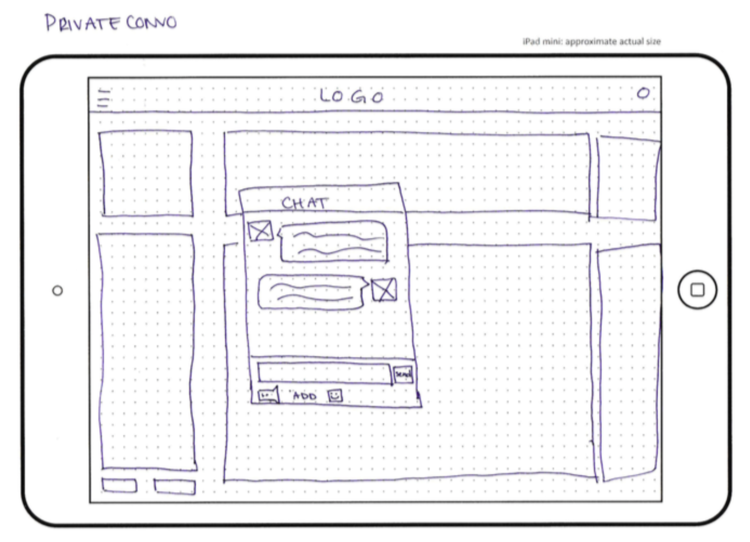 PRIVATE CONVO
iPad mini: approximate actual size
LOGO
CHAT
SEND
ADD